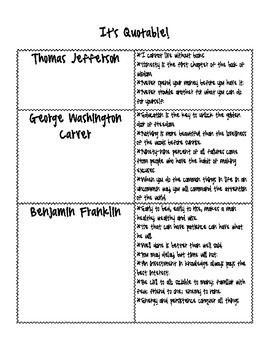 It's Quotable!
Thomas Jefferson
*I cannot live without books
*Honesty is the first chapter of the book of
wisdom
*Never spend your money before you have it
*Never trouble another for what you can do
for yourself
George Washington
Carver
*Education is the key to unlock the golden
door of freedom
*Nothing is more beautiful than the loveliness
of the woods before sunrise
*Ninety-nine percent of all failures come
from people who have the habit of making
excuses
*When you do the common things in life in an
uncommon way you will command the attention
of the world
Benjamin Franklin
*Early to bed, early to rise, makes a man
healthy wealthy and wise
*He that can have patience can have what
he will
*Well done is better than well said
*You may delay, but time will not
*An investment in knowledge always pays the
best interest
*Be civil to all; sociable to many; familiar with
few; friend to one; enemy to none
*Energy and persistence conquer all things